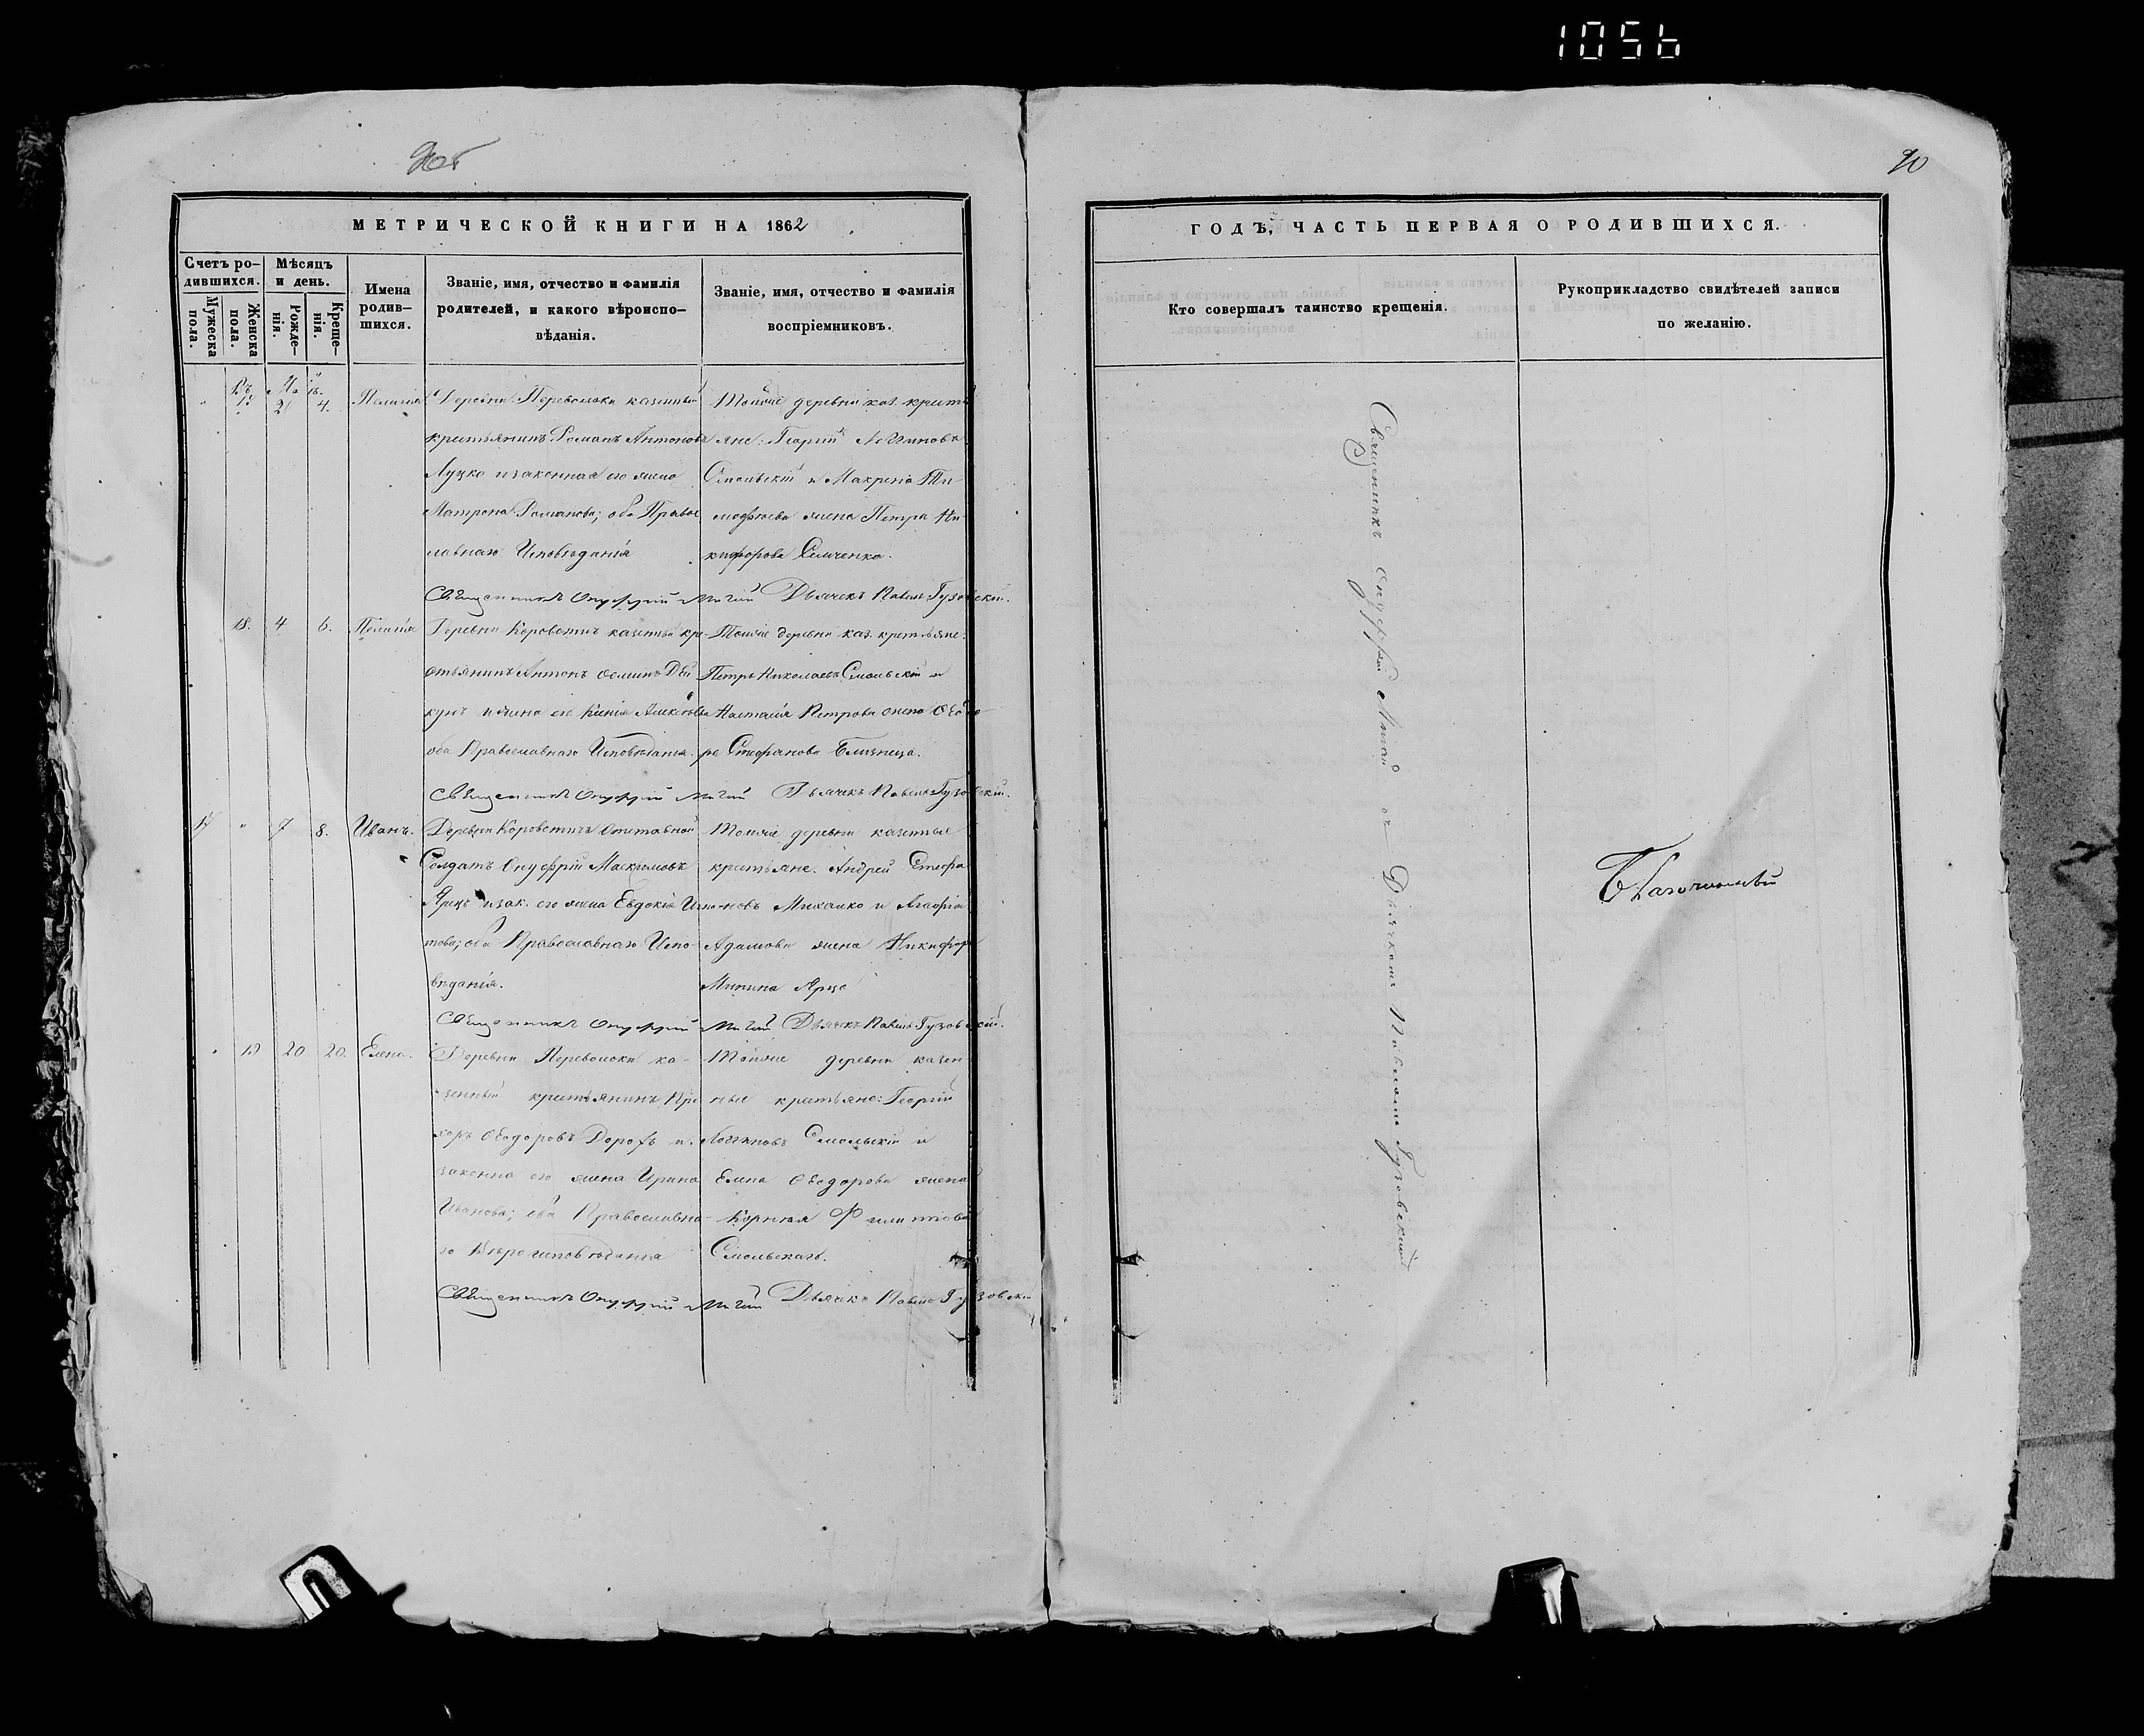 1056
90
МЕТРИЧЕСКОЙ КНИГИ НА 1862
Счетъ ро-
дившихся.
Мужеска
пола.
Женска
пола.
Мѣсяцъ
и день.
Рожде-
нія.
Креще-
нія.
Имена
родив-
шихся.
Званіе, имя, отчество и фамилія
родителей, и какого вѣроиспо-
вѣданія.
Званіе, имя, отчество и фамилія
воспріемниковъ.
4. Пелагія Деревни Переволоки казенный
крестьянинъ Романъ Антоновъ
Луцко и законная его жена
Матрона Романова; оба Право
славнаго Исповѣданія
Тойже деревни каз. кресть
яне: Георгій Логиновъ
Смольскій и Макрена Ти
мофѣева жена Петра Ни-
кифорова
Священникъ Онуфрій Мигай Дьячекъ Павелъ Гузовскій.
18. 4 6. Пелагія Деревни Коровотичъ казенный кре-
стьянинъ Антонъ
и жена его Ксенія Алексѣева
оба Православнаго Исповѣданія.
Тойже деревни каз. крестьяне:
Петръ Николаевъ Смольскій и
Настасія Петрова жена Ѳедо-
ра Стефанова Близнеца.
Священникъ Онуфрій Мигай Дьячекъ Павелъ Гузовскій.
17 " 7 8. Иванъ. Деревни Коровотичъ Отставной
Солдатъ Онуфрій Максимовъ
Ярецъ и зак. его жена Евдокія Игна
това; оба Православнаго Испо
вѣданія.
Тойже деревни казенные
крестьяне: Андрей Стефа
новъ Михалко и Агафія
Адамова жена Никифора
Минина Ярца
Священникъ Онуфрій Мигай Дьячекъ Павелъ Гузовскій.
19 20 20. Елена. Деревни Переволоки ка-
зенный крестьянинъ Гри
горъ Ѳеодоровъ Дорохъ и
законна его жена Ирина
Иванова; оба Православна-
го Вѣроисповѣданія
Тойже деревни казен
ные крестьяне: Георгій
Логгиновъ Смольскій и
Елена Ѳеодорова жена
Корнія Филиппова
Смольскаго.
Священникъ Онуфрій Мигай Дьячекъ Павелъ Гузовскій
90
ГОДЪ, ЧАСТЬ ПЕРВАЯ О РОДИВШИХСЯ.
Кто совершалъ таинство крещенія.
Рукоприкладство свидѣтелей записи
по желанію.
Священникъ Онуфрій Мигай съ Дьячкомъ Павломъ Гузовскимъ